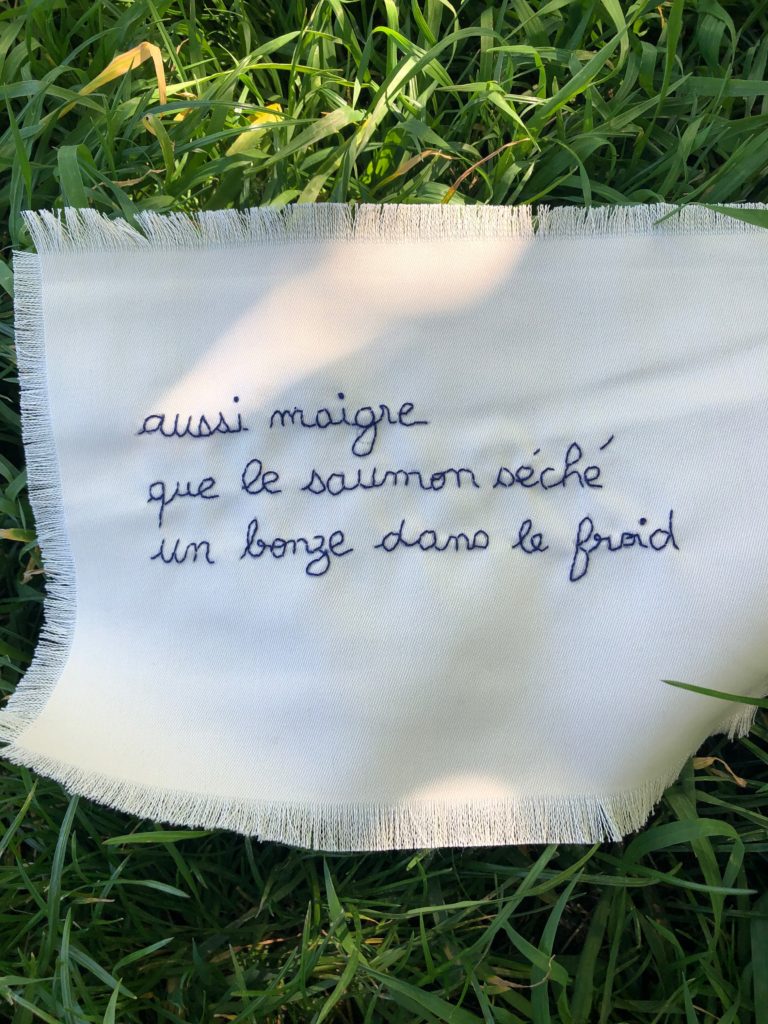 aussi maigre
que le saumon séché
un bonze dans le froid